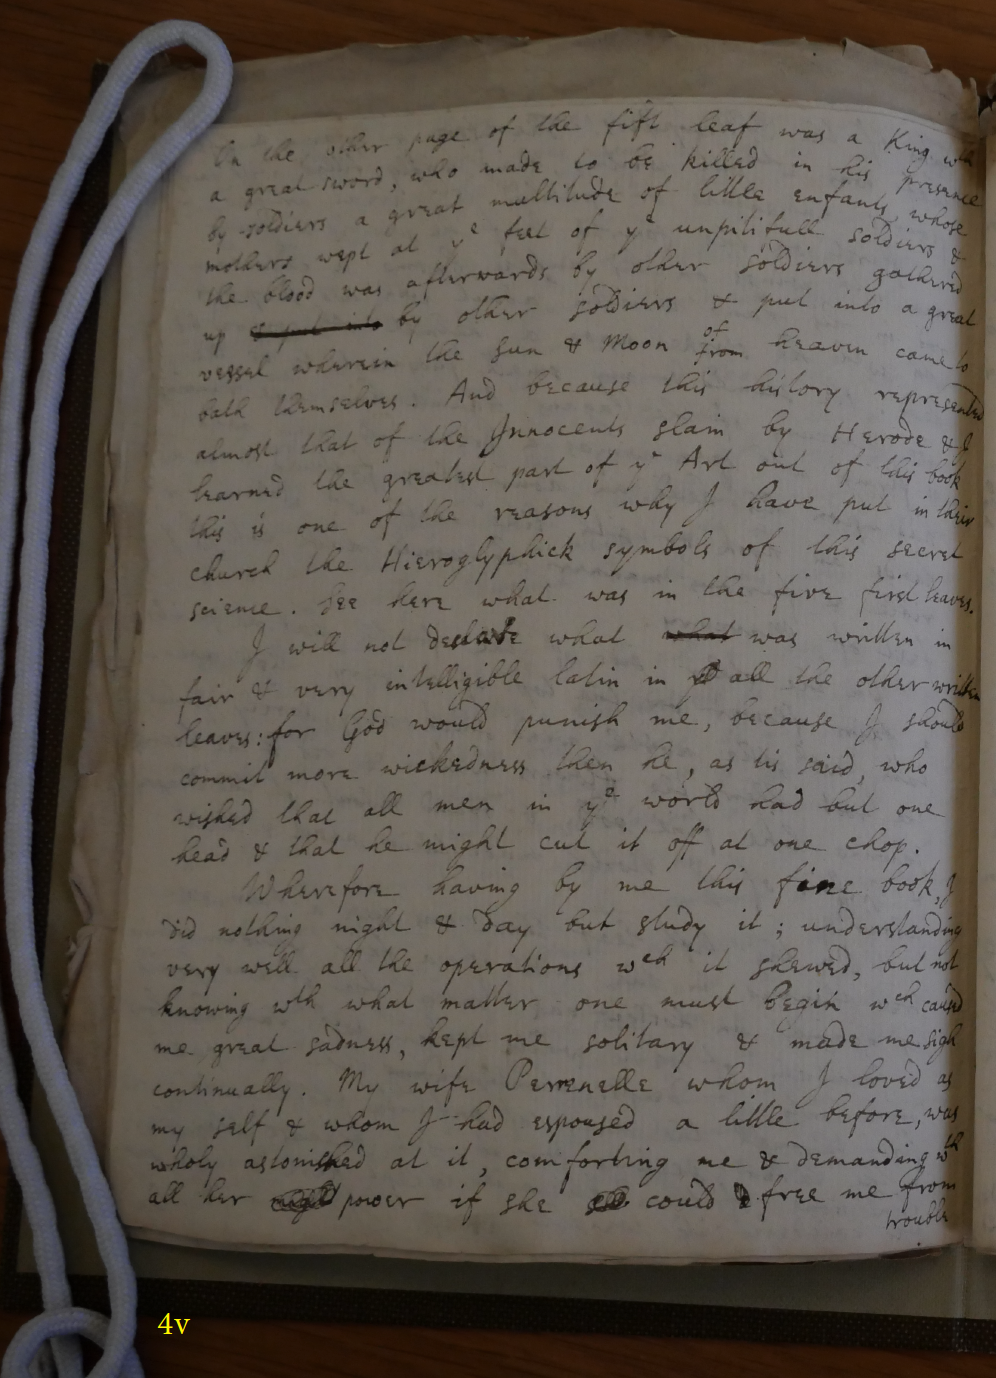 On the other page of the fift leaf was a King wth
a great sword, who made to be killed in his presence
by soldiers a great multitude of little enfants, whose
mothers wept at ye feet of ye unpitifull soldiers &
the blood was afterwards by other soldiers gathered
up & put into by other soldiers & put into a great
vessel wherein the Sun & Moon of from heaven came to
bath themselves. And because this history represented
almost that of the Innocents slain by Herode & I
learned the greatest part of ye Art out of this book
this is one of the reasons why I have put in their
church the Hieroglyphick symbols of this secret
science. See here what was in the five first leaves.
I will not declare what what was written in
fair & very intelligible latin in all the other written
leaves: for God would punish me, because I should
commit more wickedness then he, as tis said, who
wished that all men in ye world had but one
head & that he might cut it off at one chop.
Wherefore having by me this fine book, I
did nothing night & day but study it; understanding
very well all the operations wch it shewed, but not
knowing wth what matter one must begin wch caused
me great sadness, kept me solitary & made me sigh
continually. My wife Perrenelle whom I loved as
my self & whom I had espoused a little before, was
wholy astonished at it, comforting me & demanding wth
all her power if she could free me from
trouble
4v